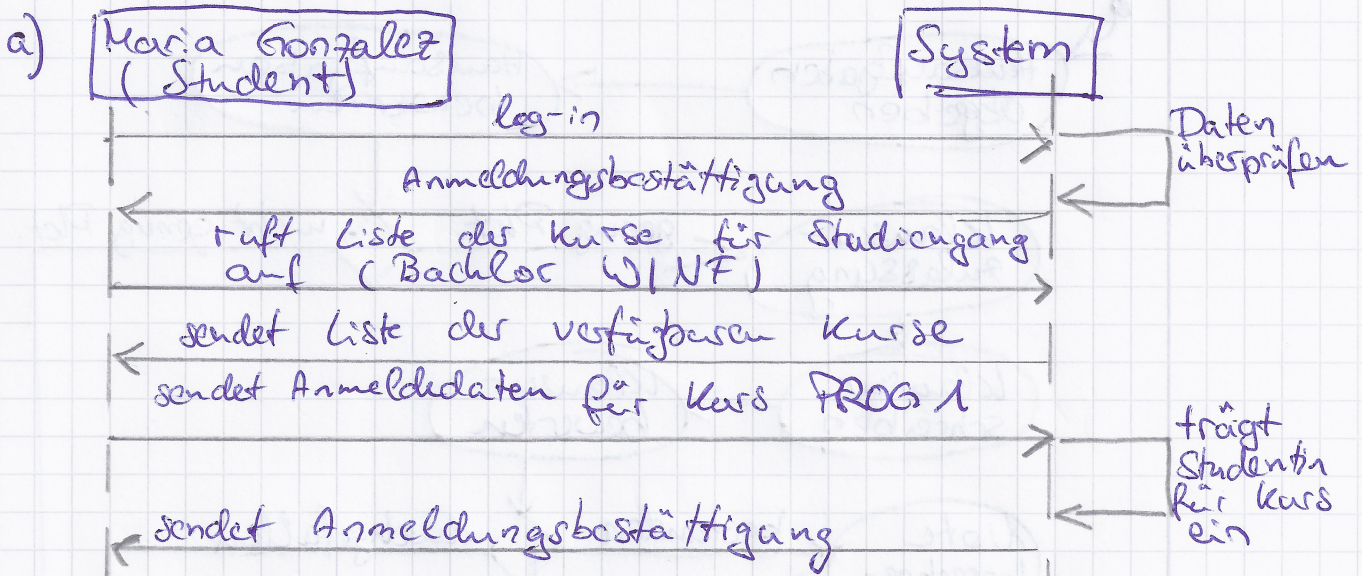 a)
Maria Gonzalez
(Student)
System
log-in
Daten
überprüfen
Anmeldungsbestättigung
ruft Liste der Kurse für Studiengang
auf (Bachlor WINF)
sendet Liste der verfügbaren Kurse
sendet Anmeldedaten für Kurs PROG 1
trägt
Studentin
für Kurs
ein
sendet Anmeldungsbestättigung